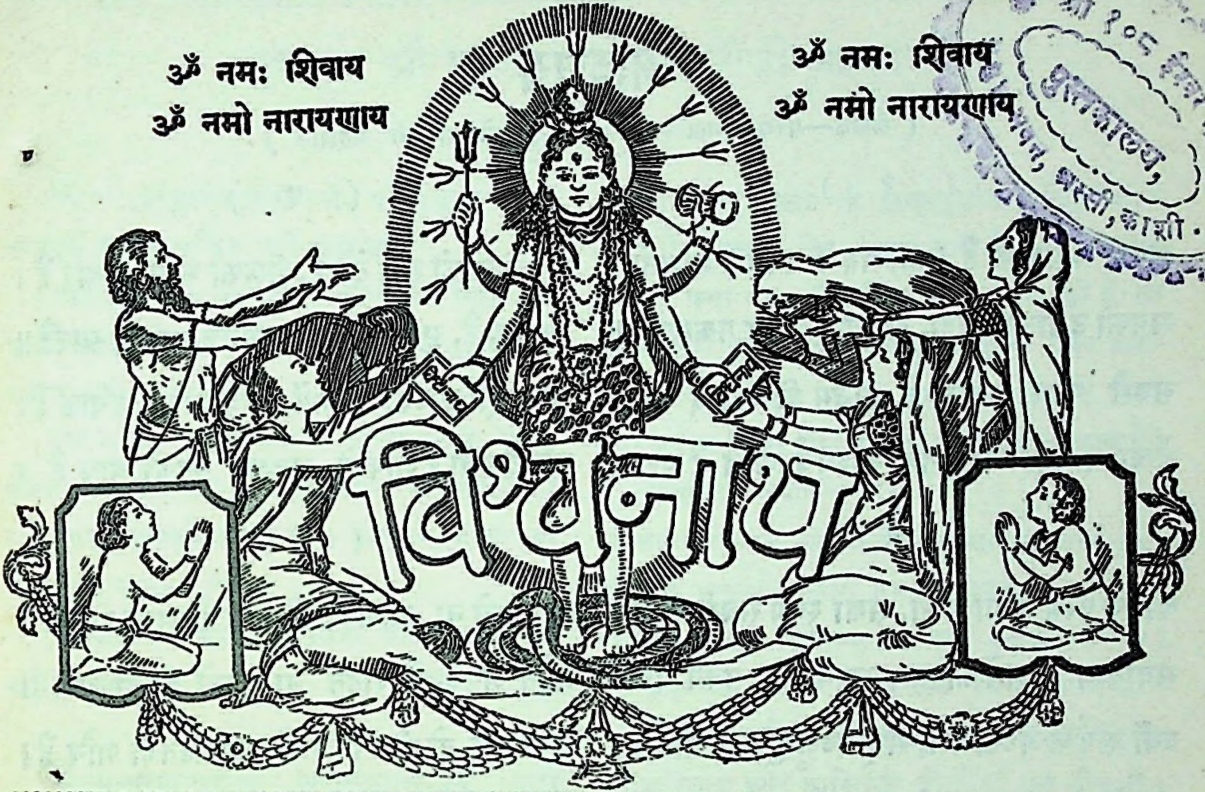 ॐ नमः शिवाय
ॐ नमो नारायणाय
ॐ नमः शिवाय
ॐ नमो नारायणाय
श्री १०८
पुस्तकालय,
भवन, अस्सी, काशी.
विश्वनाथ